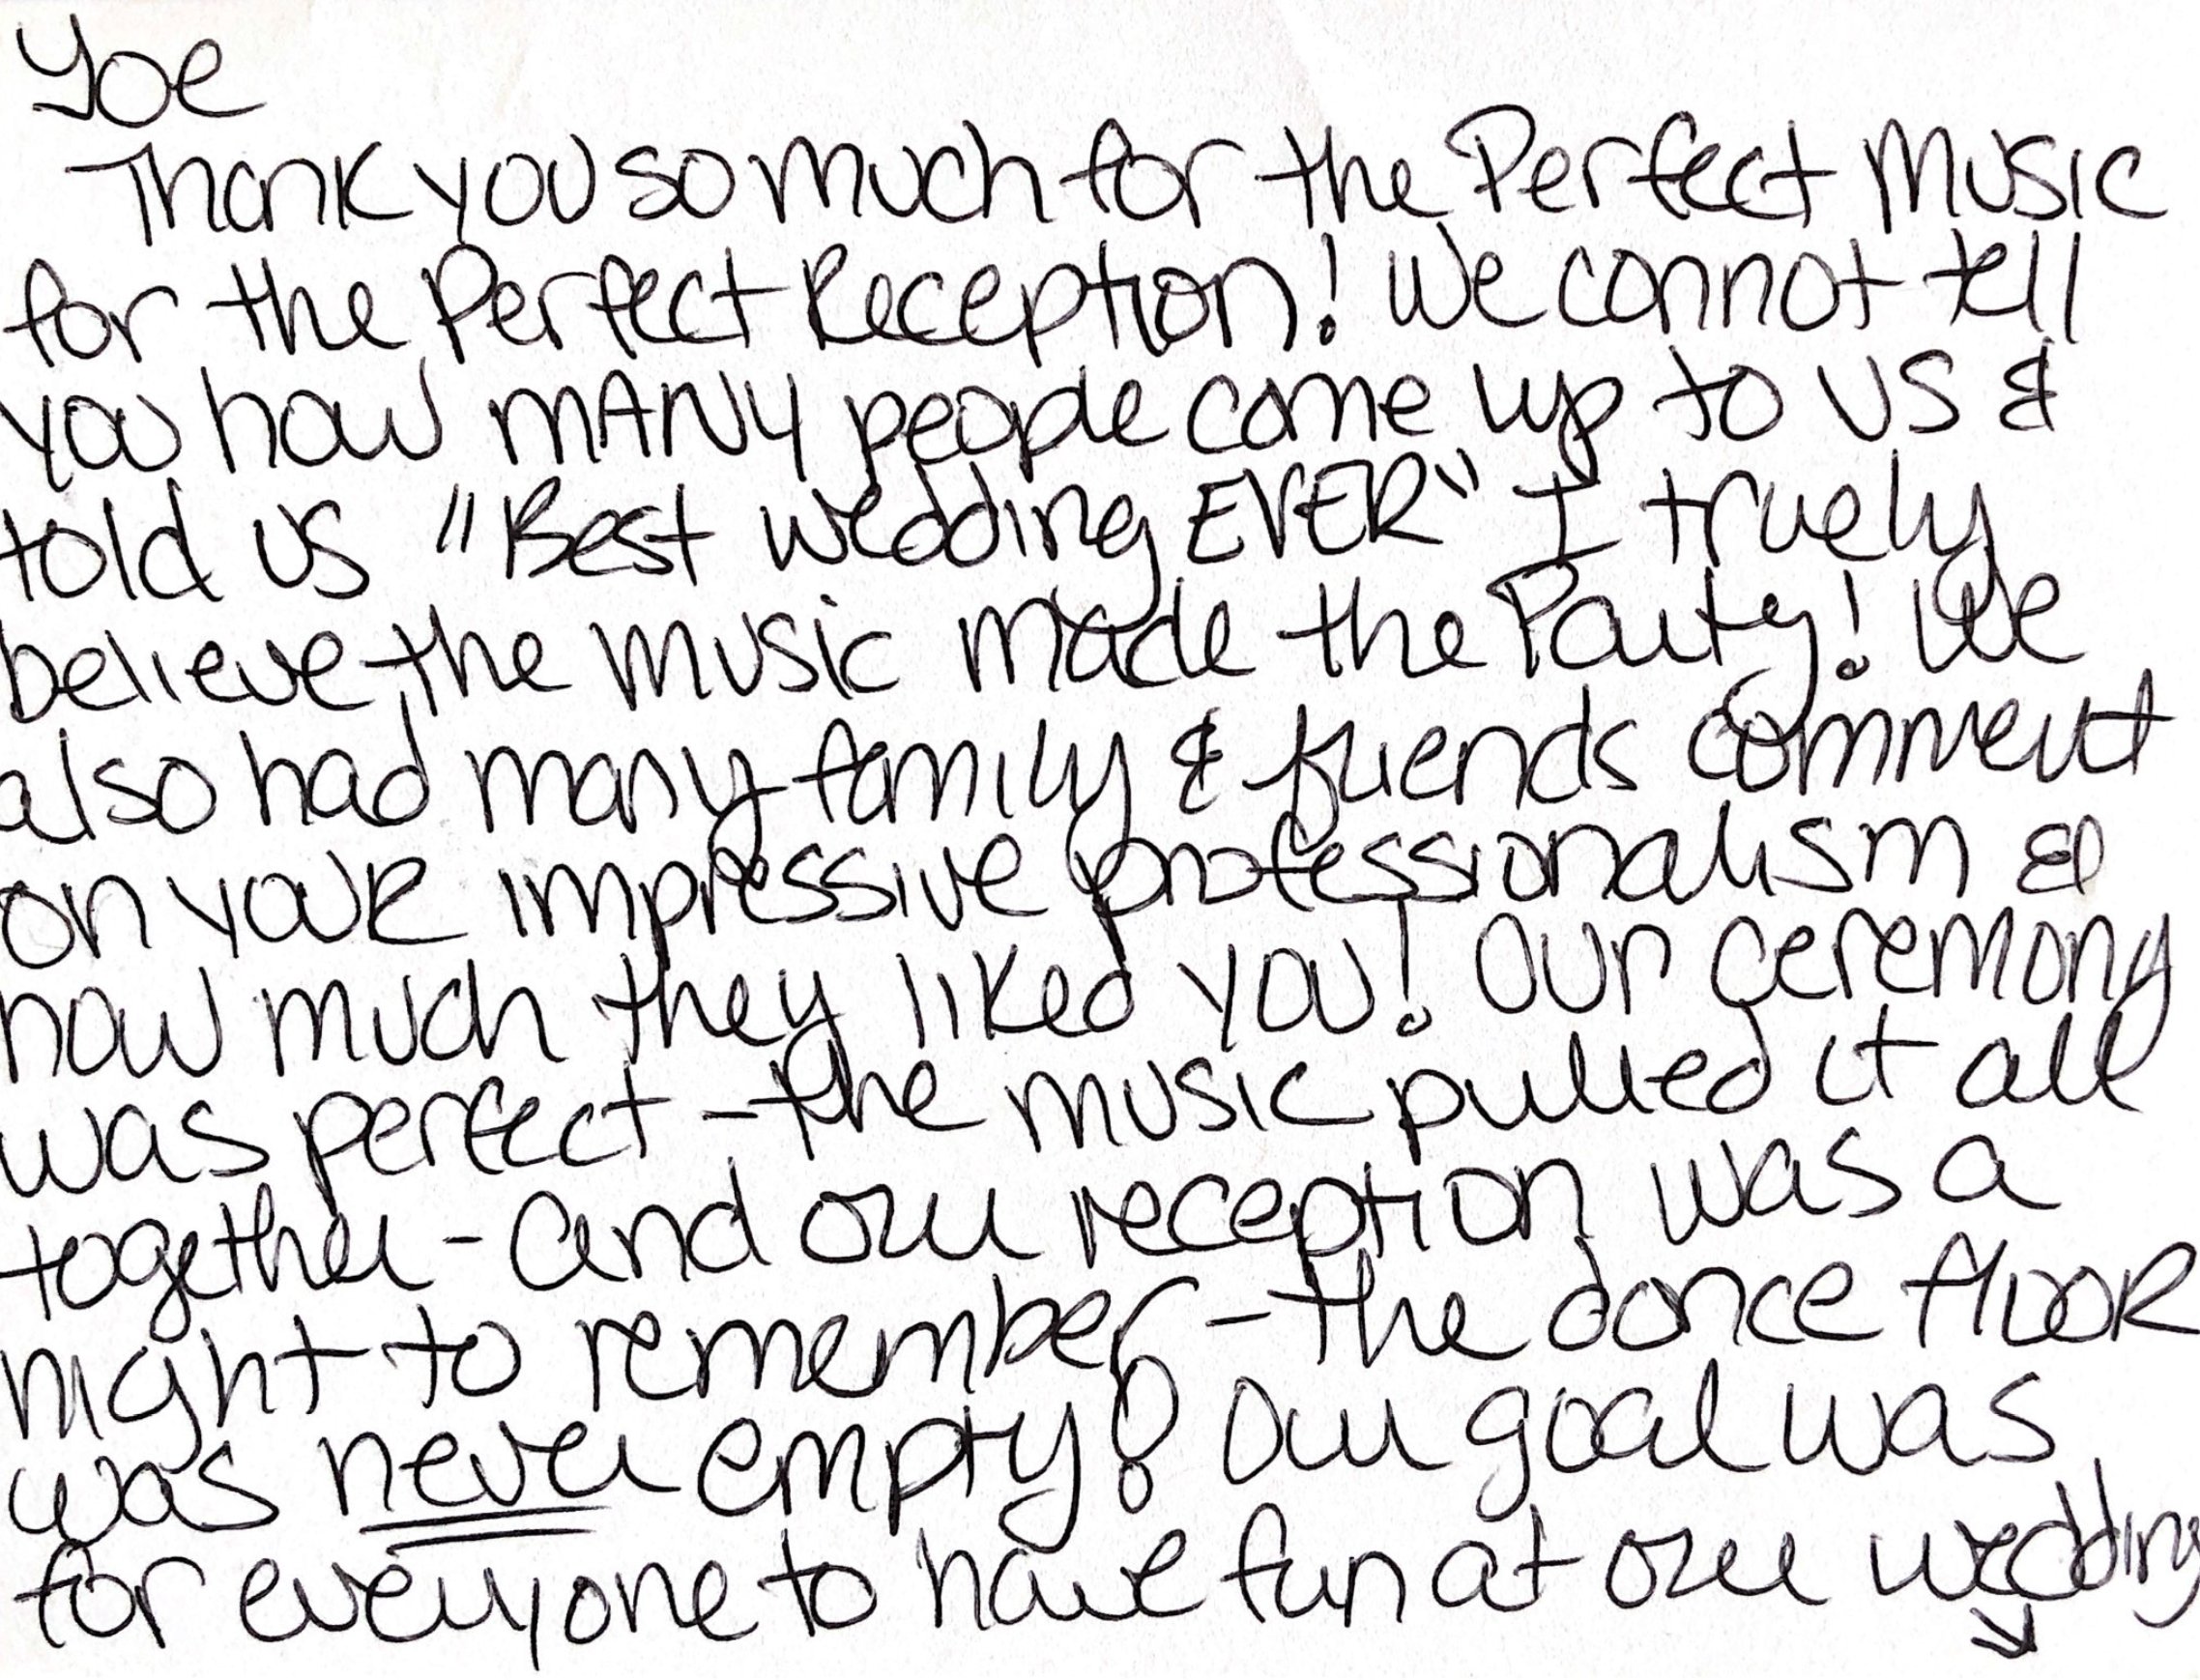 Joe
Thank you so much for the Perfect Music
for the Perfect Reception! We cannot tell
you how MANY people come up to us &
told us "Best wedding EVER" I truely
believe the music made the Party! We
also had many family & friends comment
on your impressive professionalism &
how much they liked you! Our ceremony
was perfect - the music pulled it all
together - and our reception was a
night to remember - the dance floor
was never empty! Our goal was
for everyone to have fun at our wedding